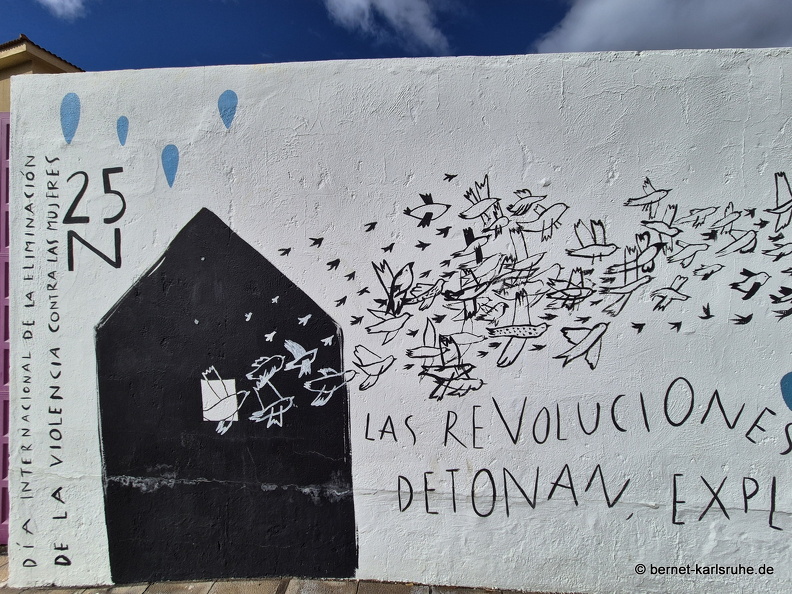 DÍA INTERNACIONAL DE LA ELIMINACIÓN
DE LA VIOLENCIA CONTRA LAS MUJERES
25
N
LAS REVOLUCIONES
DETONAN, EXPL
© bernet-karlsruhe.de